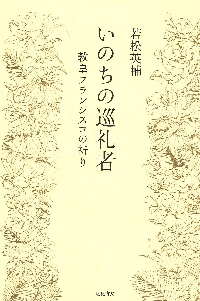 若松英輔
いのちの巡礼者
教皇フランシスコの祈り
亜紀書房